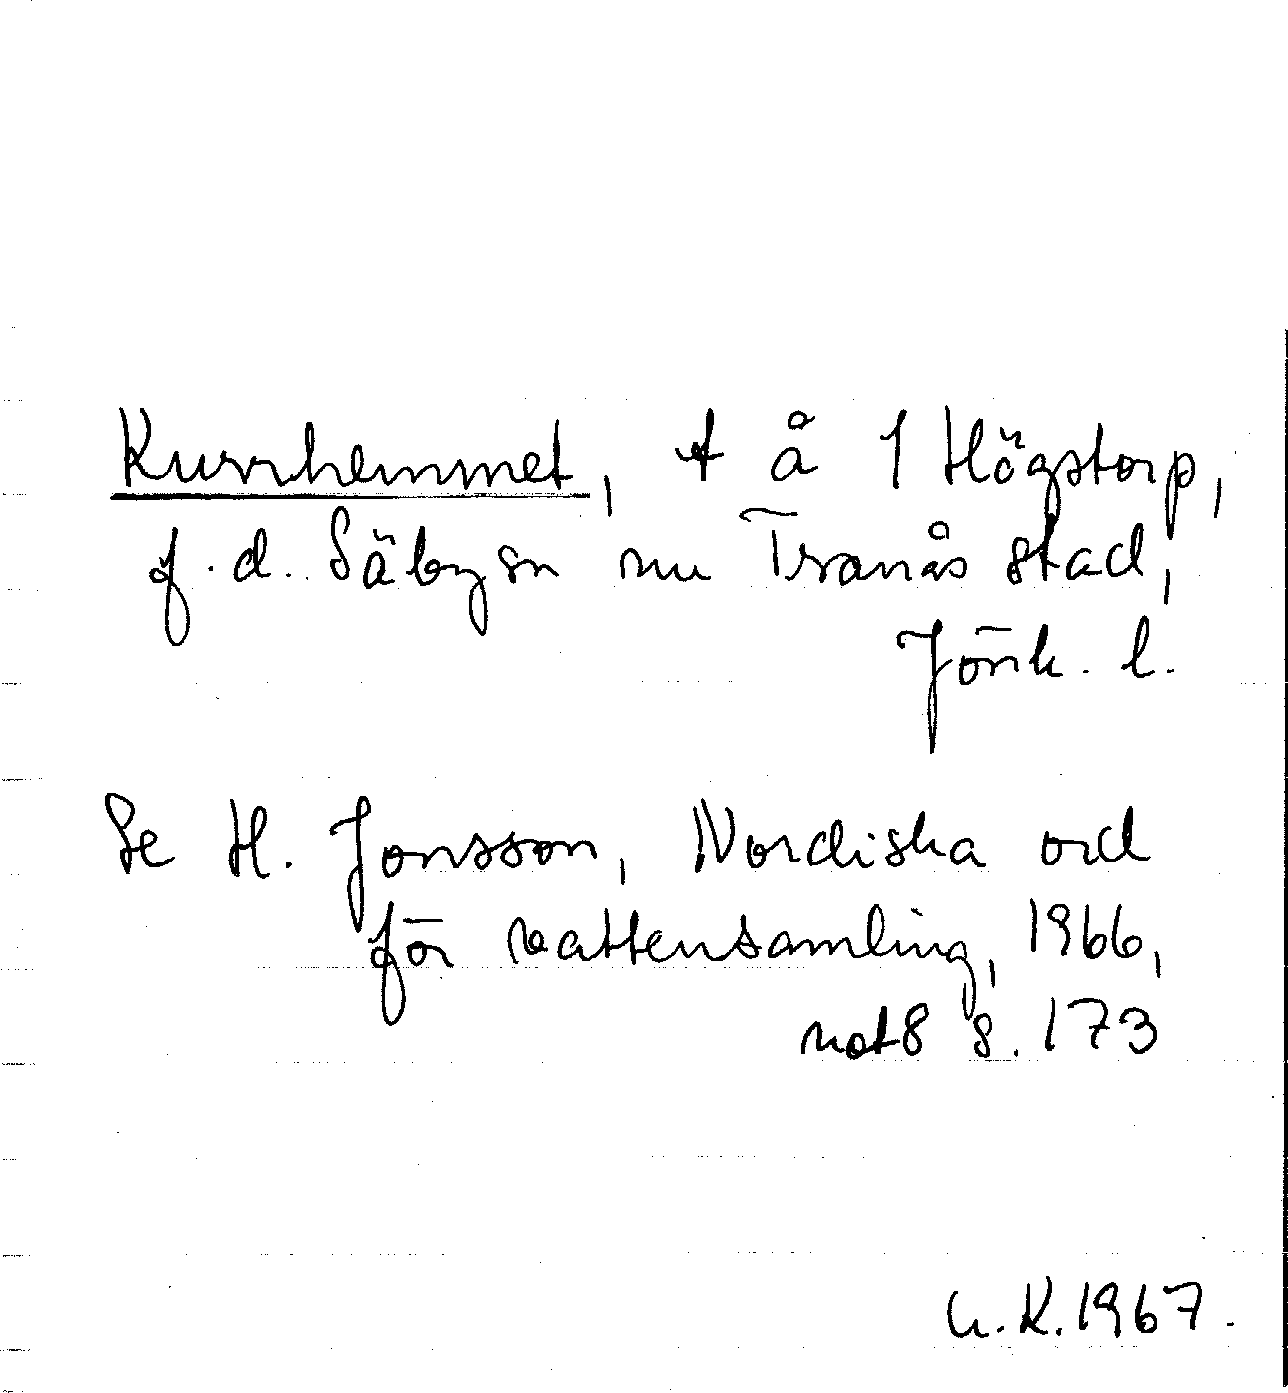 Kurrhemmet, t å 1 Högstorp,
f.d. Säby sn nu Tranås stad,
Jönk. l.
Se H. Jonsson, Nordiska ord
för vattensamling, 1966,
not 8 s. 173
U.K. 1967.